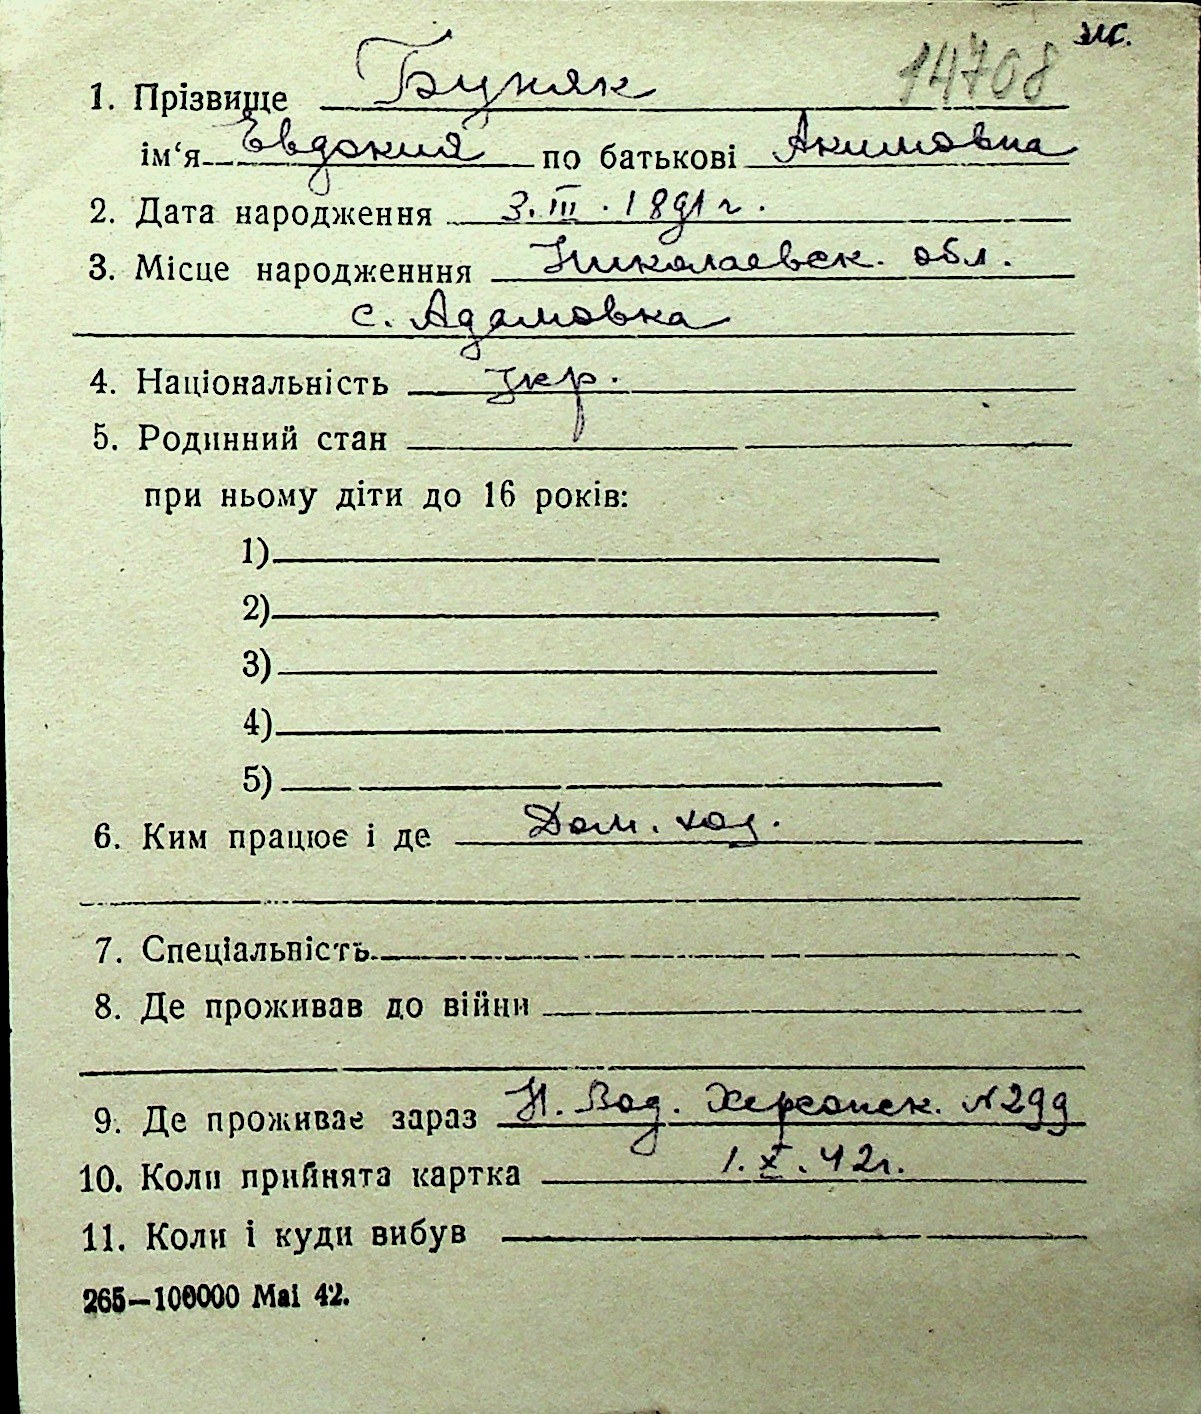 ж.
14708
1. Прізвище Буняк
ім‘я Евдокия по батькові Акимовна
2. Дата народження 3.III.1891 г.
3. Місце народженння Николаевск. обл.
с. Адамовка
4. Національність Укр.
5. Родинний стан
при ньому діти до 16 років:
1)
2)
3)
4)
5)
6. Ким працює і де Дом. хоз.
7. Спеціальність
8. Де проживав до війни
9. Де проживає зараз Н. Вод. Херсонск. №299
10. Коли прийнята картка 1.X.42г.
11. Коли і куди вибув
265—100000 Mai 42.